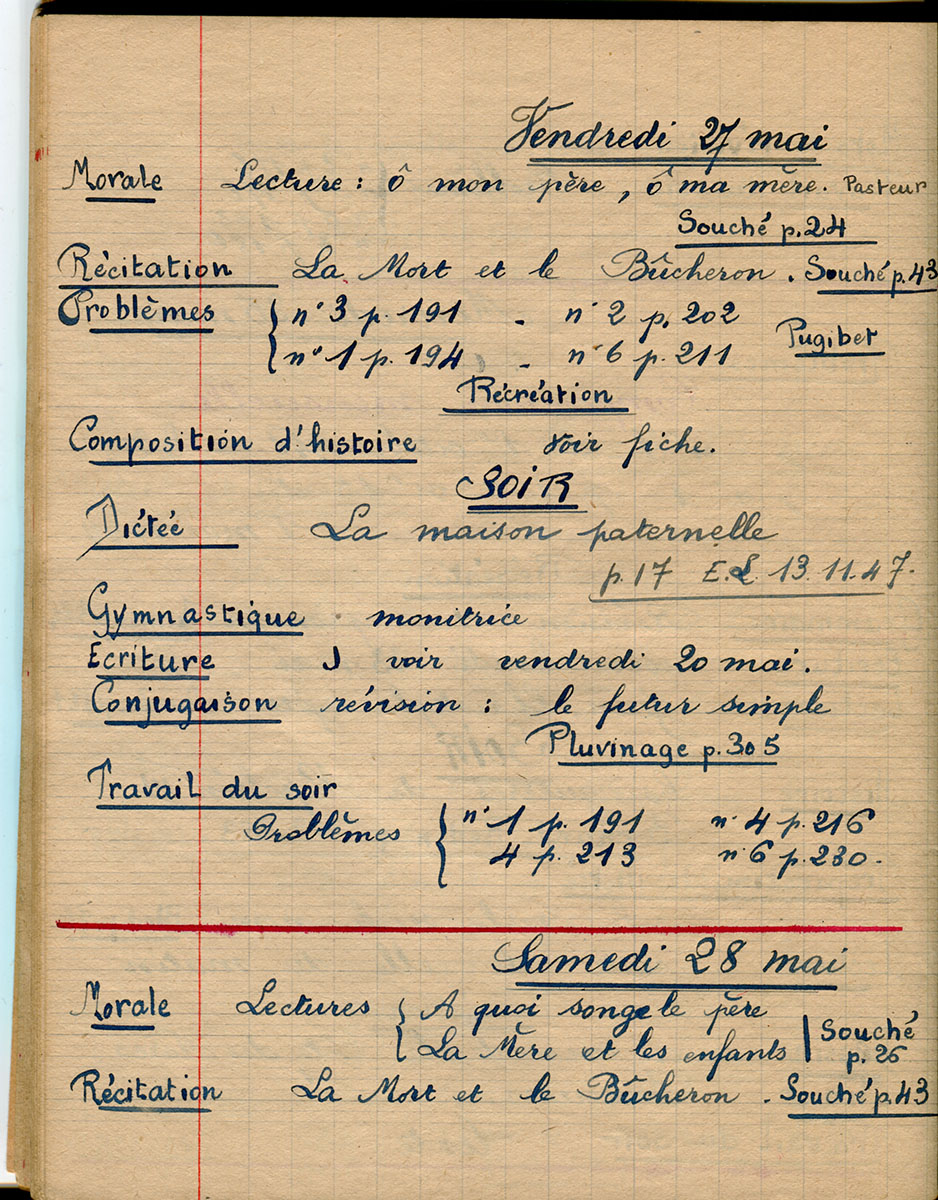 Vendredi 27 mai
Morale Lecture : ô mon père, ô ma mère. Pasteur
Souché p.24
Récitation La Mort et le Bûcheron. Souché p.43
Problèmes { n° 3 p. 191 - n° 2 p. 202
{ n° 1 p. 194 - n° 6 p. 211 Pugibet
Récréation
Composition d'histoire Voir fiche.
SOIR
Dictée La maison paternelle
p.17 E.L. 13.11.47.
Gymnastique . monitrice
Ecriture J voir vendredi 20 mai.
Conjugaison révision : le futur simple
Pluvinage p.305
Travail du soir
Problèmes { n° 1 p. 191 n° 4 p. 216
4 p. 213 n° 6 p. 230.
Samedi 28 mai
Morale Lectures { A quoi songe le père | Souché
{ La Mère et les enfants | p.26
Récitation La Mort et le Bûcheron. Souché p.43